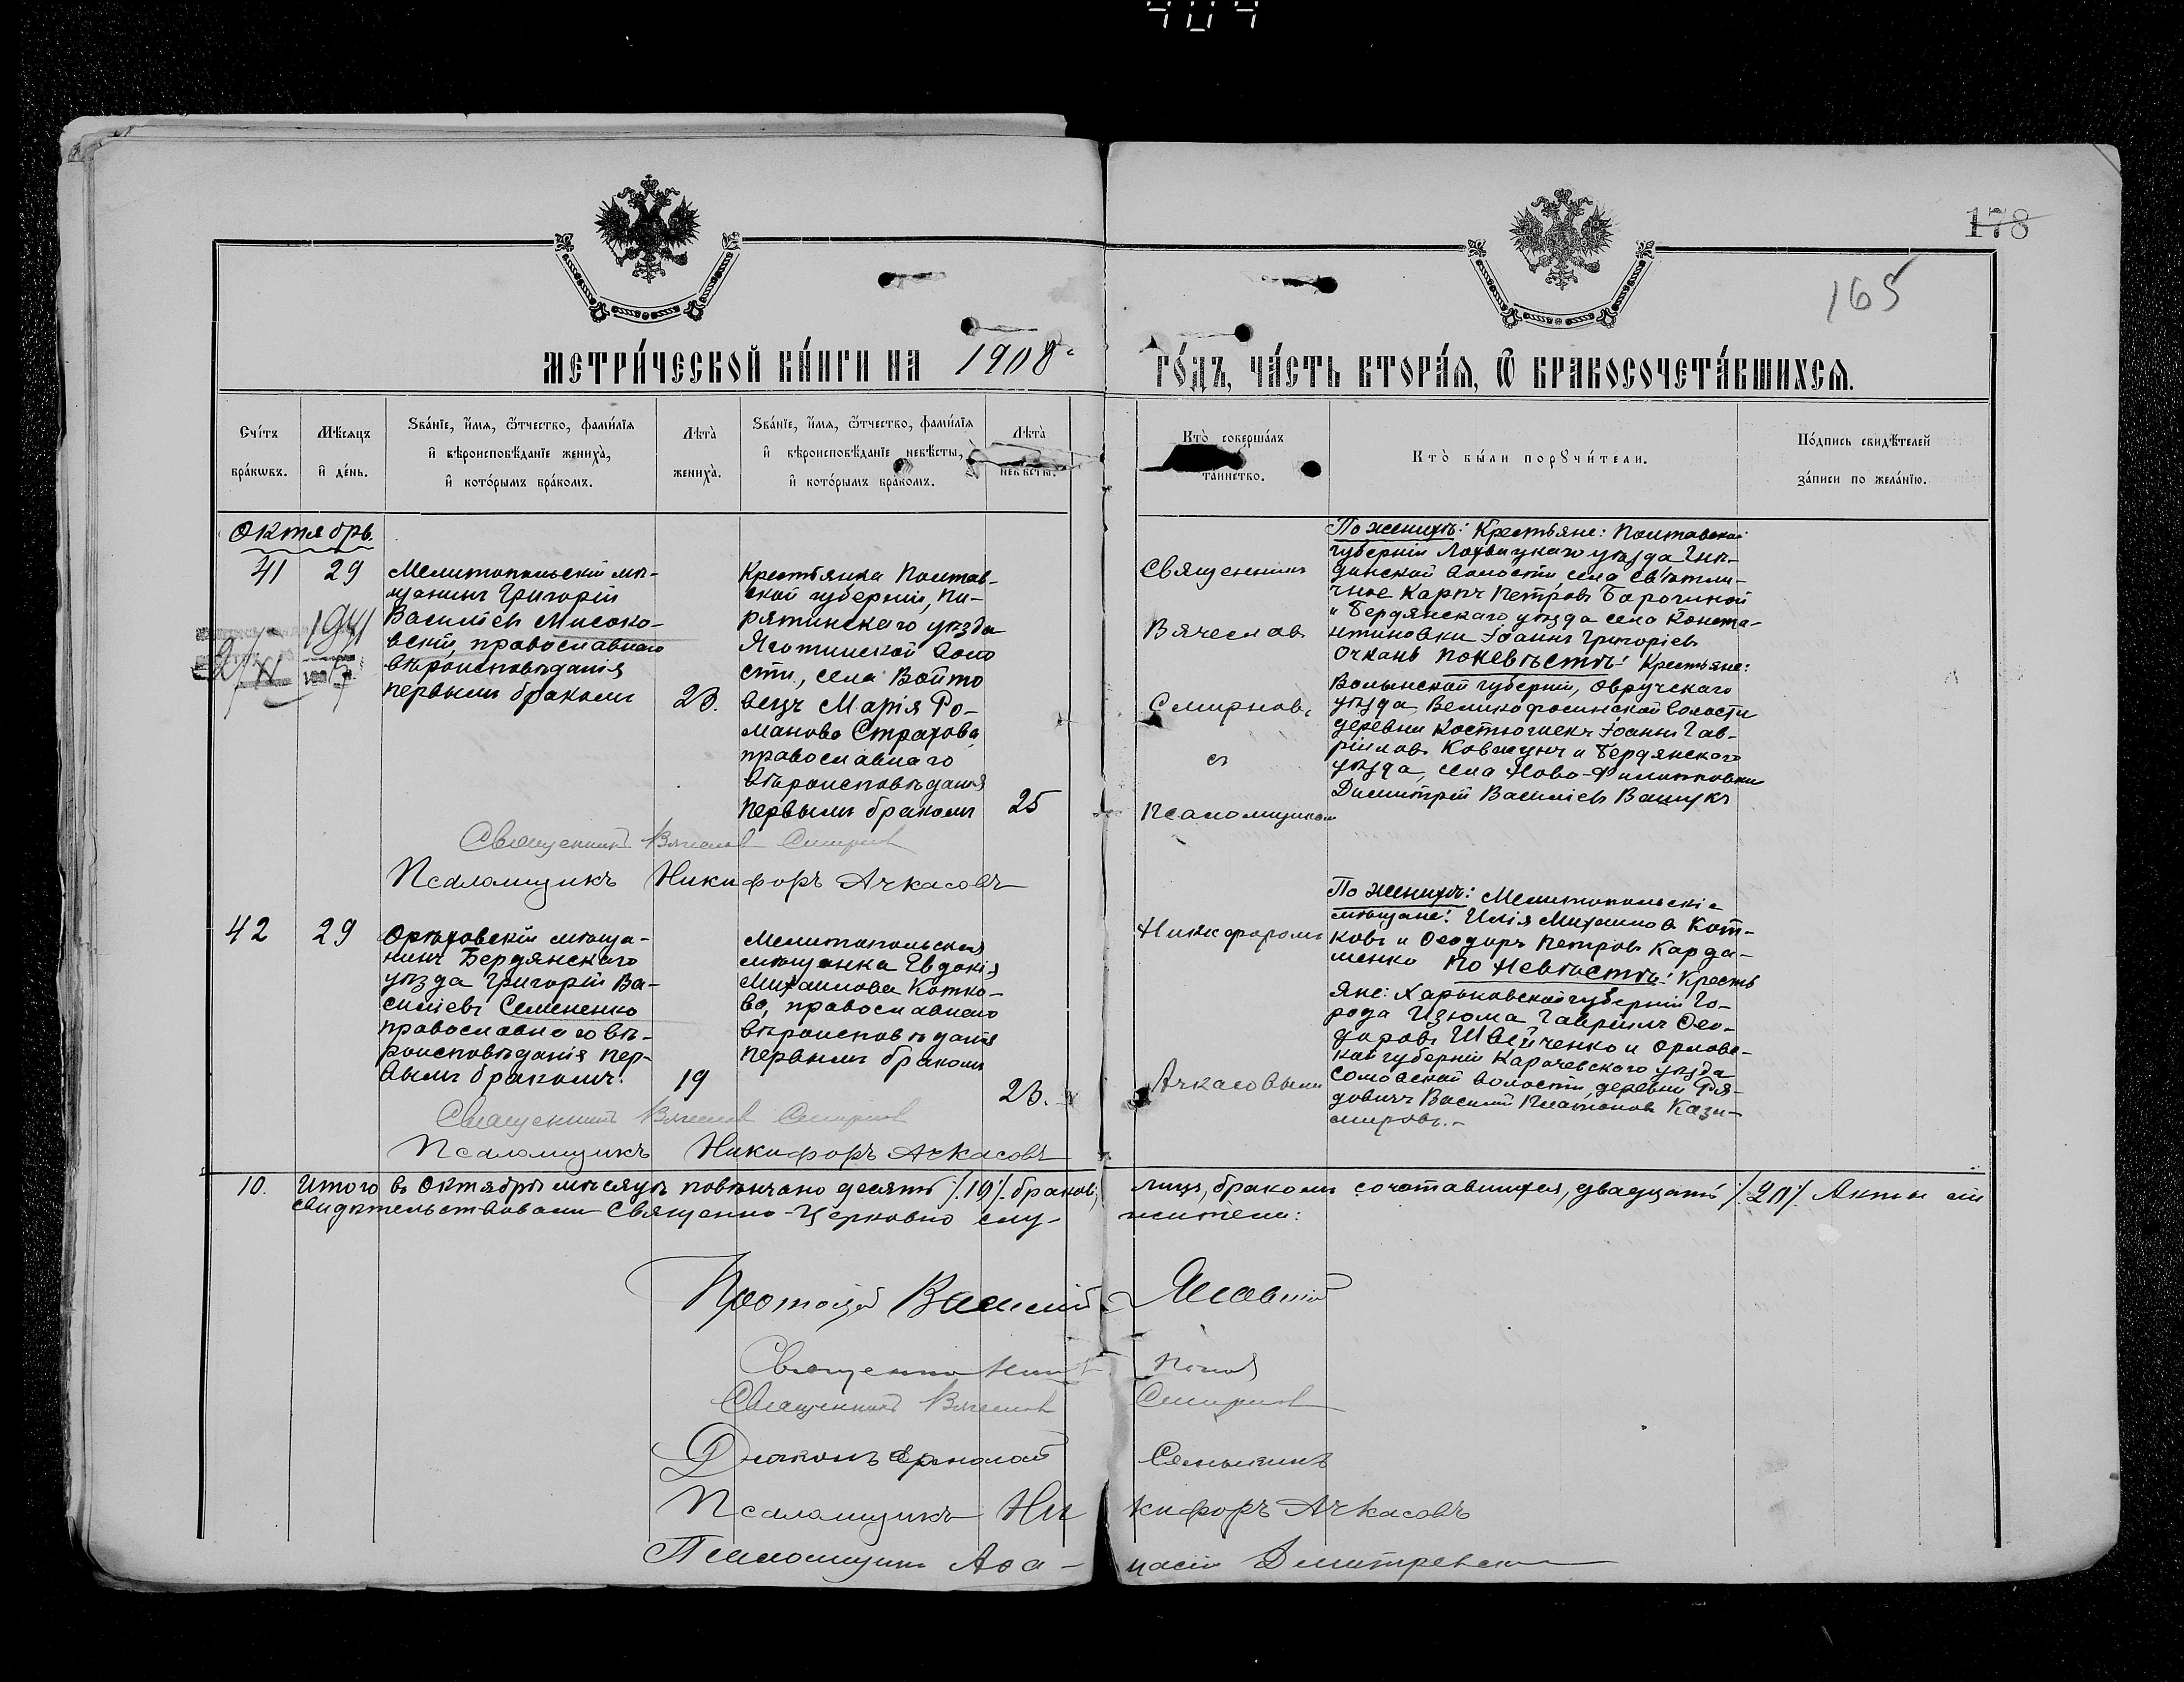 404
178
165
МЕТРИ́ЧЕСКОЙ КНИ́ГИ НА 1908 г ГО́ДЪ, ЧА́СТЬ ВТОРА́Я, Ѿ БРАКОСОЧЕТА́ВШИХСЯ.
Сче́тъ
бра́кѡвъ.
Мѣ́сяцъ
и҆ де́нь.
Зва́нїе, и҆́мя, ѻ҆́тчество, фами́лїя
и҆ вѣроисповѣ́данїе жениха̀,
и҆ кото́рымъ бра́комъ.
Лѣта̀
жениха̀.
Зва́нїе, и҆́мя, ѻ҆́тчество, фами́лїя
и҆ вѣроисповѣ́данїе невѣ́сты,
и҆ кото́рымъ бра́комъ.
Лѣта̀
невѣ́сты.
Кто̀ соверша́лъ
таинство.
Кто̀ бы́ли порꙋчи́тели.
По́дпись свидѣ́телей
за́писи по жела́нїю.
Октябрь.
41
29
1941
Мелитопольскій мѣ-
щанинъ Григорій
Василіевъ Мисоко-
вскій, православнаго
вѣроисповѣданія
первымъ бракомъ
23.
Крестьянка Полтав-
ской губерніи, Пи-
рятинскаго уѣзда
Яготинской воло
сти, села Войто
вецъ Марія Ро-
манова Страхова,
православнаго
вѣроисповѣданія
первымъ бракомъ
25
Священникъ
Вячеславъ
Смирновъ
съ
Псаломщикомъ
По женихѣ: Крестьяне: Полтавской
губерніи Лохвицкаго уѣзда
волости села Свѣтли-
чное Карпъ Петровъ
и Бердянскаго уѣзда села Конста-
нтиновки Іоаннъ Григоріевъ
По невѣстѣ: Крестьяне:
Волынской губерніи, Овручскаго
уѣзда Великофоснянской волости
деревни Іоаннъ Гав-
ріиловъ Ковтунъ и Бердянскаго
уѣзда, села Ново-Филипповки
Димитрій Василіевъ
Священникъ Вячеслав Смирнов
Псаломщикъ Никифоръ Ачкасовъ
42
29
Орѣховскій мѣща-
нинъ Бердянскаго
уѣзда Григорій Ва-
силіевъ Семененко
православнаго вѣ-
роисповѣданія пер-
вымъ бракомъ.
19
Мелитопольская
мѣщанка Евдокія
Михаилова Котко-
ва, православнаго
вѣроисповѣданія
первымъ бракомъ
23.
Никифоромъ
Ачкасовымъ
По женихѣ: Мелитопольскіе
мѣщане: Илія Михаиловъ Кот-
ковъ и Ѳеодоръ Петровъ Карда-
шенко По невѣстѣ: Кресть
яне: Харьковской губерніи Го-
рода Изюма Гавріилъ Ѳео-
доровъ Швейченко и Орловс-
кой губерніи Карачевскаго уѣзда
волости, деревни Ря-
довичъ Василій Платоновъ Кази-
мировъ.-
Священникъ Вячеслав Смирнов
Псаломщикъ Никифоръ Ачкасовъ
10. Итого въ Октябрѣ мѣсяцѣ повѣнчано десять /.10/. браковъ; лицъ, бракомъ сочетавшихся, двадцать /.20/. Акты сіи
свидѣтельствовали Священно-Церковно слу- жители:
Протоіерей Василій
Священникъ Попов
Священникъ Вячеслав Смирнов
Діаконъ
Псаломщикъ Ни кифоръ Ачкасовъ
Псаломщикъ Аѳа- насій